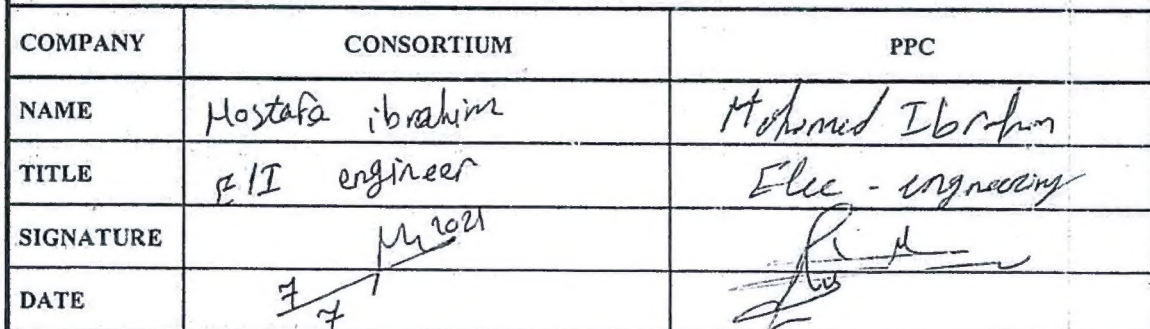 COMPANY CONSORTIUM PPC
NAME Mostafa ibrahim Mohamed Ibrahim
TITLE E/I engineer Elec - engneering
SIGNATURE 2021
DATE 7/7